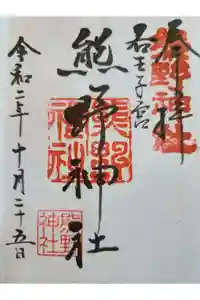 奉拝
熊野神社
若王子宮
熊野神社
令和二年十月二十五日
熊野神社